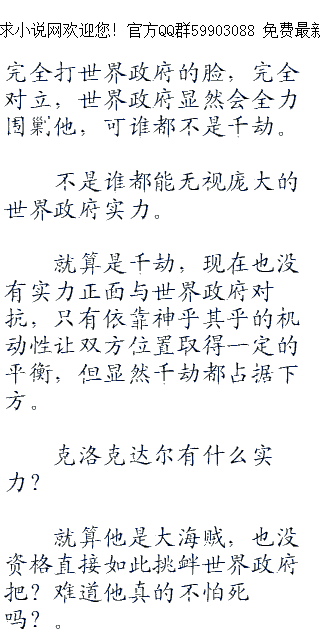 求小说网欢迎您！官方QQ群59903088 免费最新
完全打世界政府的脸，完全
对立，世界政府显然会全力
围剿他，可谁都不是千劫。
不是谁都能无视庞大的
世界政府实力。
就算是千劫，现在也没
有实力正面与世界政府对
抗，只有依靠神乎其乎的机
动性让双方位置取得一定的
平衡，但显然千劫都占据下
方。
克洛克达尔有什么实
力？
就算他是大海贼，也没
资格直接如此挑衅世界政府
把？难道他真的不怕死
吗？。